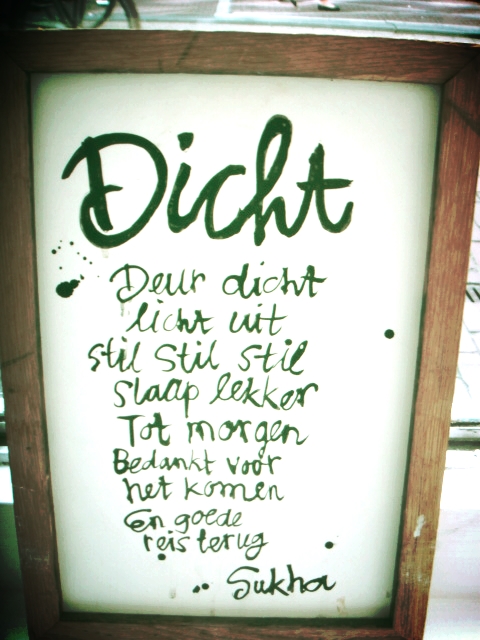 Dicht
Deur dicht
licht uit
stil stil stil
slaap lekker
Tot morgen
Bedankt voor
het komen
En goede
reis terug
Sukha